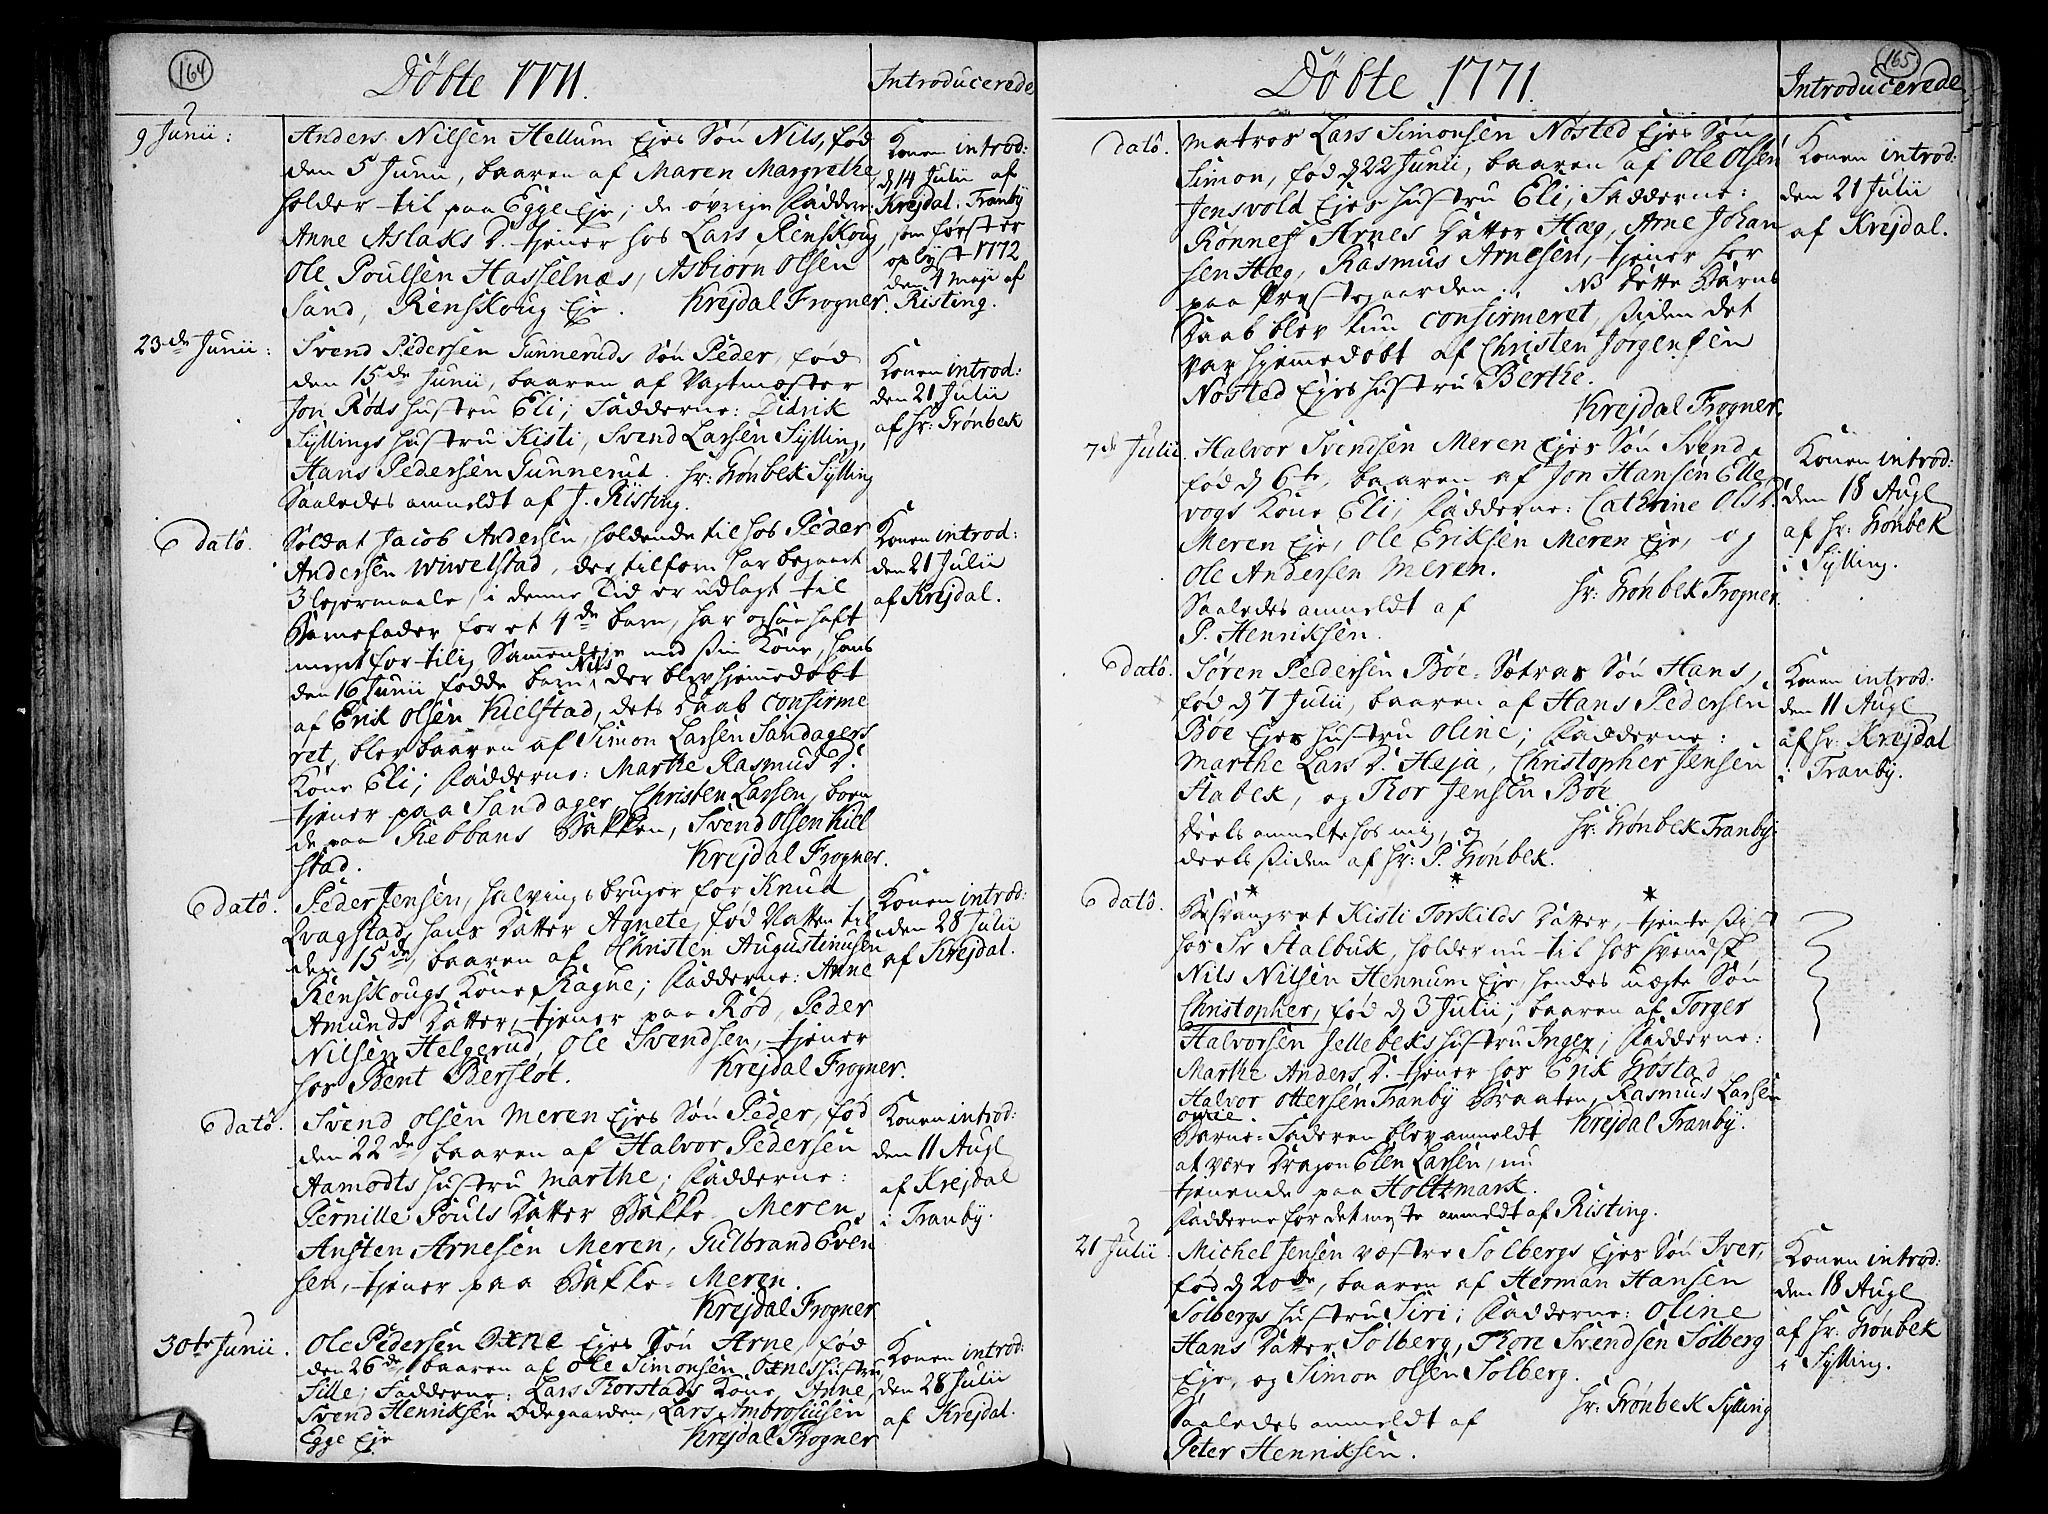 164
Döbte 1771.
Introducerede
9 Junii:
Anders Nilsen Hellum Ejes Sön Nils, fød
den 5 Junii, baaren af Maren Margrethe
holder til paa Egge Eje; de øvrige Faddere:
Anne Aslaks D. tjener hos Lars Renskoug,
Ole Poulsen Hasselnæs, Asbiørn Olsen
Sand, Renskoug Eje. Krejdal Frogner.
Konen introd:
d 14 Julii af
Krejdal. Tranby
som først er
oplyst 1772
den 4 Maji af
Risting.
23de Junii:
Svend Pedersen Gunneruds Sön Peder, fød
den 15de Junii, baaren af Vagtmæster
Jon Röds Hustru Eli; Fadderne: Didrik
Syllings Hustru Kisti, Svend Larsen Sylling,
Hans Pedersen Gunnerud. Hr: Grönbek Sylling
Saaledes anmeldt af J. Risting.
Konen introd:
den 21 Julii
af Hr: Grönbek
Dato.
Soldat Jacob Andersen, holdende til hos Peder
Andersen Wiwelstad, der tilforn har begaaet
3 Lejermaale, i denne Tid er udlagt til
Barnefader for et 4de barn, har ogsaa haft
meget for tilig Sammenleje med sin Kone, hans
den 16 Junii fødde barn Nils, der blev hjemmedøbt
af Erik Olsen Kielstad, dets Daab confirme
ret, blev baaren af Simon Larsen Sandagers
Kone Eli; Fadderne: Marthe Rasmus D.
tjener paa Sandager, Christen Larsen, boen
de paa Rebbans Bakken, Svend Olsen Kiel
stad. Krejdal Frogner.
Konen introd:
den 21 Julii
af Krejdal.
Dato.
Peder Jensen, halvings bruger for Knud
Qvagstad, hans Datter Agnete, fød Natten til
den 15de, baaren af Christen Augustinusen
Renskougs Kone Ragne; Fadderne: Anne
Amunds Datter, tjener paa Röd, Peder
Nilsen Helgerud, Ole Svendsen, tjener
hos Bent Berflot. Krejdal Frogner.
Konen introd:
den 28 Julii
af Krejdal.
Dato.
Svend Olsen Meren Ejes Sön Peder, fød
den 22de baaren af Halvor Pedersen
Aamodts Hustru Marthe; Fadderne:
Pernille Pouls Datter Bakke-Meren,
Ansten Arnesen Meren, Gulbrand Even
sen, tjener paa Bakke-Meren.
Krejdal Frogner
Konen introd:
den 11 Augl
af Krejdal
i Tranby.
30te Junii.
Ole Pedersen Oxne Ejes Sön Arne, fød
den 26de, baaren af Ole Simonsen Oxnes Hustru
Sille; Fadderne: Lars Thorstads Kone, Anne,
Svend Henriksen Ødegaarden, Lars Ambrosiusen
Egge Eje Krejdal Frogner
Konen introd:
den 28 Julii
af Krejdal.
165
Döbte 1771.
Introducerede
Dato.
Matros Lars Simonsen Nösted Ejes Sön
Simon, fød d 22 Junii, baaren af Ole Olsen
Jensvold Ejes Hustru Eli; Fadderne:
Rönnef Arnes Datter Hæg, Arne Johan
sen Hæg, Rasmus Arnesen, tjener her
paa Præstegaarden. NB Dette Barns
Daab blev kun confirmeret, siden det
var hjemmedøbt af Christen Jörgensen
Nösted Ejes Hustru Berthe.
Krejdal Frogner.
Konen introd:
den 21 Julii
af Krejdal.
7de Julii.
Halvor Svendsen Meren Ejes Sön Svend,
fød d 6te, baaren af Jon Hansen Elle
vogs Kone Eli; Fadderne: Cathrine Ols D.
Meren Eje, Ole Eriksen Meren Eje, og
Ole Andersen Meren.
Saaledes anmeldt af Hr: Grönbek Frogner.
P. Henriksen.
Konen introd:
den 18 Augl
af Hr: Grönbek
i Sylling.
Dato.
Sören Pedersen Böe-Sætras Sön Hans,
fød d 7 Julii, baaren af Hans Pedersen
Böe Ejes Hustru Oline; Fadderne:
Marthe Lars D. Heja, Christopher Jensen
Stabek, og Thor Jensen Böe
Deels anmeldte hos mig, og Hr: Grönbek Tranby
deels siden af Hr: P. Grönbek.
Konen introd:
den 11 Augl
af Hr: Krejdal
i Tranby.
Dato.
Besvangret Kisti Torkilds Datter, tjente sidst
hos Sr Stalbuk, holder nu til hos
Nils Nilsen Hennum Eje, hendes uægte Sön
Christopher, fød d 3 Julii, baaren af Torger
Halvorsen Jellebeks Hustru Inger; Fadderne:
Marthe Anders D. tjener hos Erik Gröstad,
Halvor Ottersen Tranby Braaten, Rasmus Larsen
Barne-Faderen blev anmeldt Krejdal Tranby.
at være Dragon Elen Larsen, nu
tjenende paa Holtzmark.
Fadderne for det meste anmeldt af Risting.
21 Julii.
Michel Jensen vestre Solbergs Ejes Sön Iver,
fød d 20de, baaren af Herman Hansen
Solbergs Hustru Siri; Fadderne: Oline
Hans Datter Solberg, Thore Svendsen Solberg
Eje, og Simon Olsen Solberg.
Saaledes anmeldt af Hr: Grönbek Sylling
Peter Henriksen.
Konen introd:
den 18 Augl
af Hr: Grönbek
i Sylling.